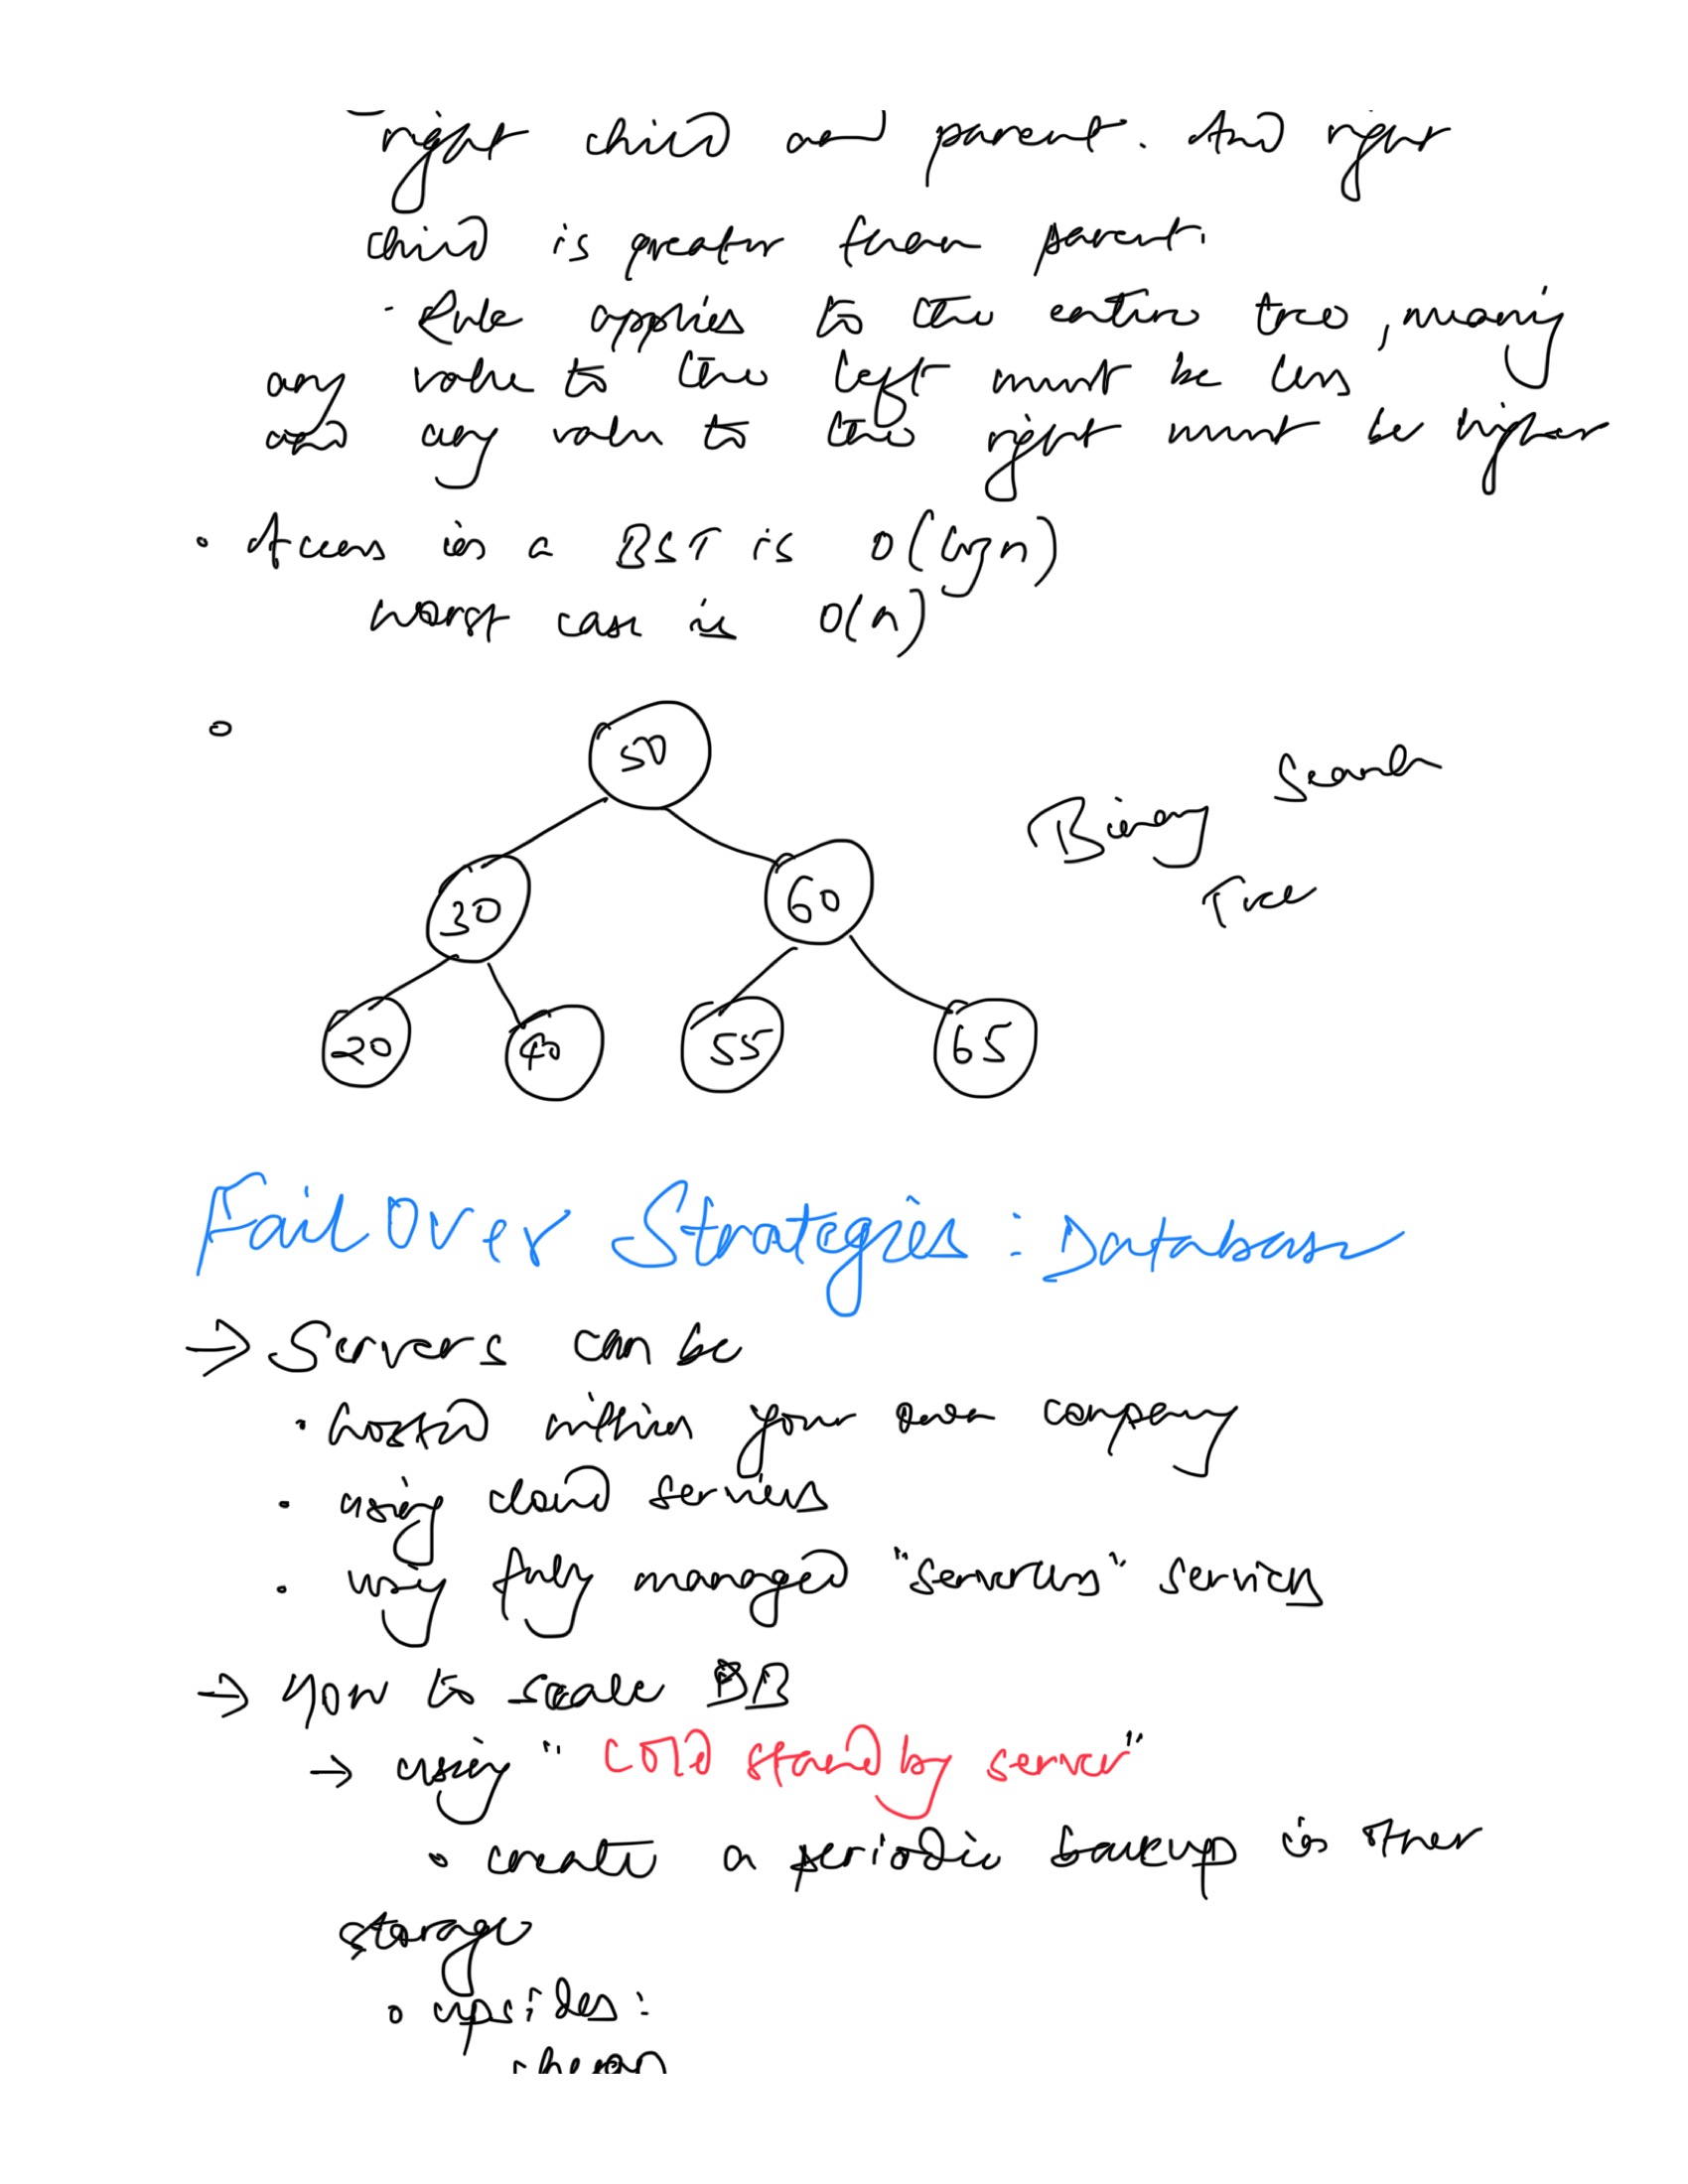 right child and parent. And right
child is greater than parent.
· Rule applies to the entire tree, meaning
any value to the left must be less
and any value to the right must be higher
• Access in a BST is O(log n)
worst case is O(n)
50
Binary Search
Tree
30 60
20 40 55 65
Fail Over Strategies : Database
→ Servers can be
· hosted within your own company
· using cloud services
· using fully managed "serverless" services
→ How to scale DB
→ using "cold stand by server"
• create a periodic backup in other
storage
• upsides: